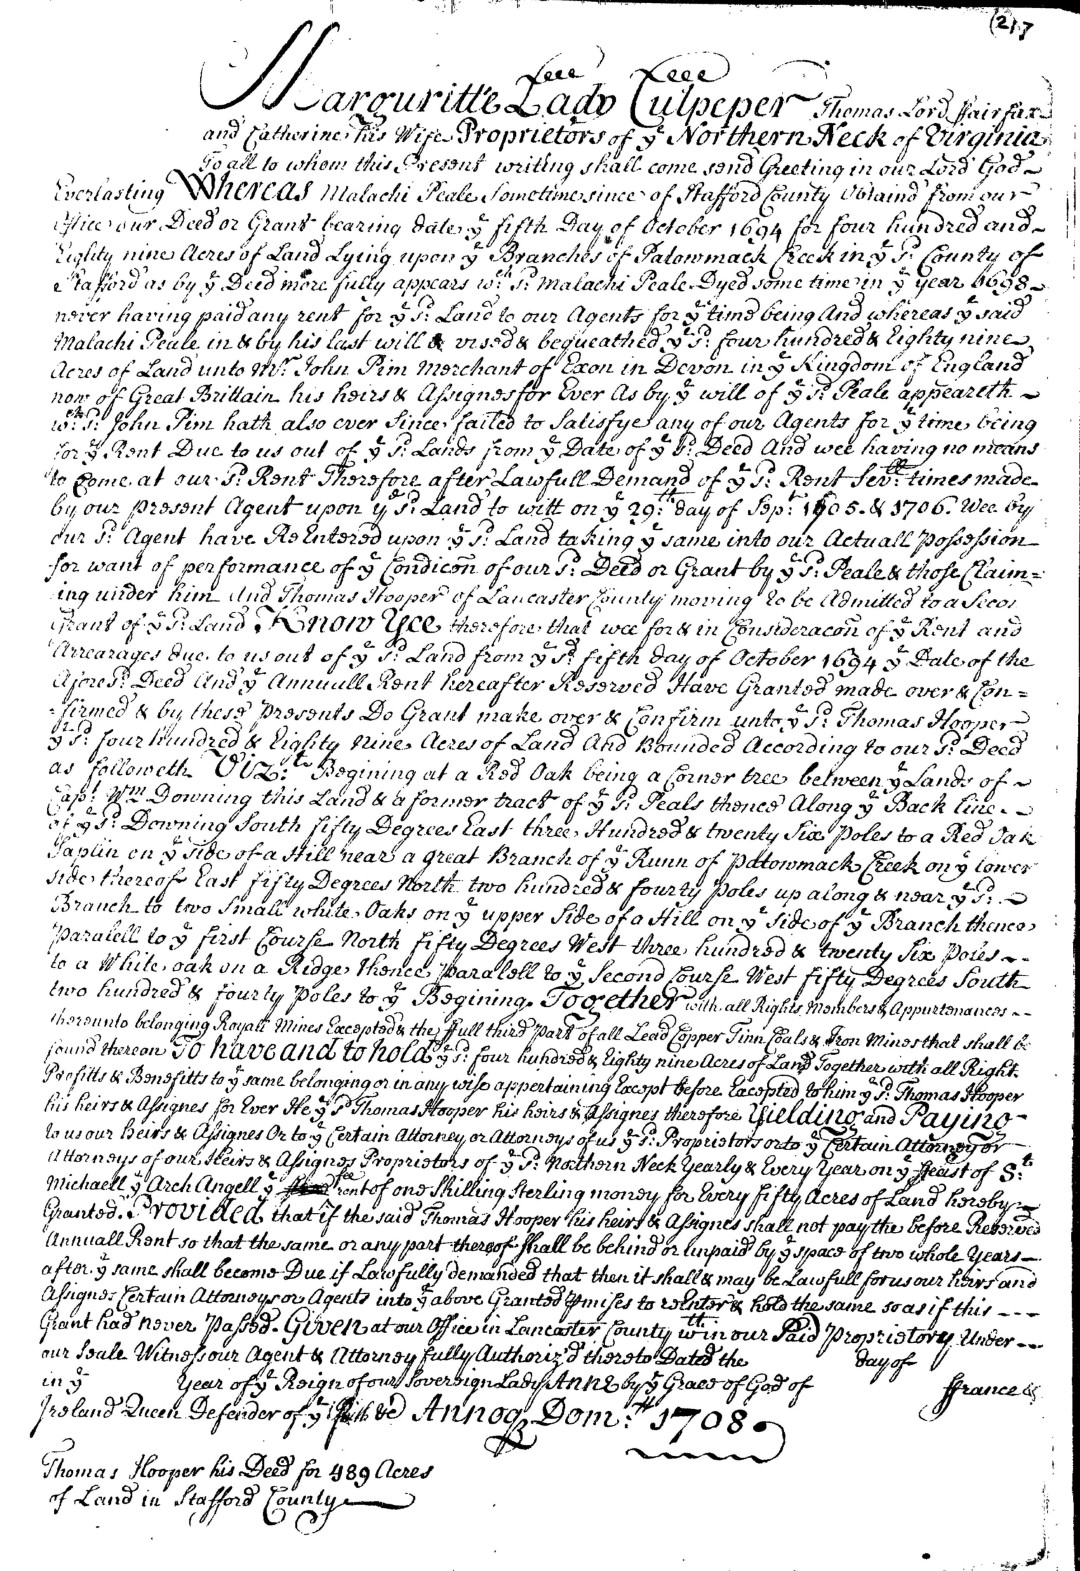 (217
Marguritte Lady Culpeper Thomas Lord Fairfax
and Catherine his Wife Proprietors of ye Northern Neck of Virginia
To all to whom this Present writing shall come send Greeting in our Lord God
Everlasting Whereas Malachi Peale Sometime since of Stafford County Obtaind from our
Office our Deed or Grant bearing date ye fifth Day of October 1694 for four hundred and
Eighty nine Acres of Land Lying upon ye Branches of Patowmack Creek in ye sd. County of
Stafford as by ye Deed more fully appears wch. sd. Malachi Peale Dyed some time in ye year 1698
never having paid any rent for ye sd. Land to our Agents for ye time being And whereas ye said
Malachi Peale in & by his last will & vised & bequeathed ye sd. four hundred & Eighty nine
Acres of Land unto Mr. John Pim Merchant of Exon in Devon in ye Kingdom of England
now off Great Brittain his heirs & Assignes for Ever As by ye will of ye sd. Peale appeareth
wch. sd. John Pim hath also ever since failed to Satisfye any of our Agents for ye time being
for ye Rent Due to us out of ye sd. Lands from ye Date of ye sd. Deed And wee having no means
to Come at our sd. Rent Therefore after Lawfull Demand of ye sd. Rent Sevrll. times made
by our present Agent upon ye sd. Land to witt on ye 29th. day of Sept. 1705. & 1706. Wee by
our sd. Agent have ReEntered upon ye sd. Land taking ye same into our Actuall Possession
for want of performance of ye Condicōn of our sd. Deed or Grant by ye sd. Peale & those Claim=
ing under him And Thomas Hooper of Lancaster County moving to be Admitted to a Secon
Grant of ye sd. Land Know Yee therefore that wee for & in Consideracōn of ye Rent and
Arrearages due to us out of ye sd. Land from ye sd. fifth day of October 1694 ye Date of the
Aforesd. Deed And ye Annuall Rent hereafter Reserved Have Granted made over & Con=
=firmed & by these Presents Do Grant make over & Confirm unto ye sd. Thomas Hooper
ye sd. four hundred & Eighty Nine Acres of Land And Bounded According to our sd. Deed
as followeth Vizt. Begining at a Red Oak being a Corner tree between ye Lands of
Capt. Wm. Downing this Land & a former tract of ye sd. Peals thence Along ye Back line
of ye sd. Downing South fifty Degrees East three Hundred & twenty Six Poles to a Red Oak
Saplin on ye side of a Hill near a great Branch of ye Runn of Patowmack Creek on ye lower
side thereof East fifty Degrees North two hundred & fourty Poles up along & near ye sd.
Branch to two Small white Oaks on ye upper side of a Hill on ye side of ye Branch thence
Paralell to ye first Course North fifty Degrees West three hundred & twenty Six Poles
to a White oak on a Ridge thence Paralell to ye Second Course West fifty Degrees South
two hundred & fourty Poles to ye Begining. Together with all Rights Members & Appurtenances
thereunto belonging Royall Mines Excepted & the ffull third Part of all Lead Copper Tinn Coals & Iron Mines that shall be
found thereon To have and to hold ye sd. four hundred & Eighty nine Acres of Land Together with all Right
Profitts & Benefitts to ye same belonging or in any wise appertaining Except before Excepted to him ye sd. Thomas Hooper
his heirs & Assignes for Ever He ye sd. Thomas Hooper his heirs & Assignes therefore Yielding and Paying
to us our heirs & Assignes Or to ye Certain Attorney or Attorneys of us ye sd. Proprietors or to ye Certain Attorney or
Attorneys of our Heirs & Assignes Proprietors of ye sd. Northern Neck Yearly & Every Year on ye ffeast of St.
Michaell ye Arch Angell ye fee rent of one Shilling Sterling money for Every fifty Acres of Land hereby
Granted. Provided that if the said Thomas Hooper his heirs & Assignes shall not pay the before Reserved
Annuall Rent so that the same or any part thereof Shall be behind or unpaid by ye space of two whole Years
after ye same shall become Due if Lawfully demanded that then it shall & may be Lawfull for us our heirs and
Assignes Certain Attorneys or Agents into ye above Granted Pmises to reEnter & hold the same so as if this
Grant had never Passed. Given at our Office in Lancaster County wthin our said Proprietory Under
our Seale Witness our Agent & Attorney fully Authoriz'd thereto Dated the day of
in ye Year of ye Reign of our Sovereign Lady Anne by ye Grace of God of ffrance &
Ireland Queen Defender of ye ffaith &c Annoq Dom. 1708.
Thomas Hooper his Deed for 489 Acres
of Land in Stafford County